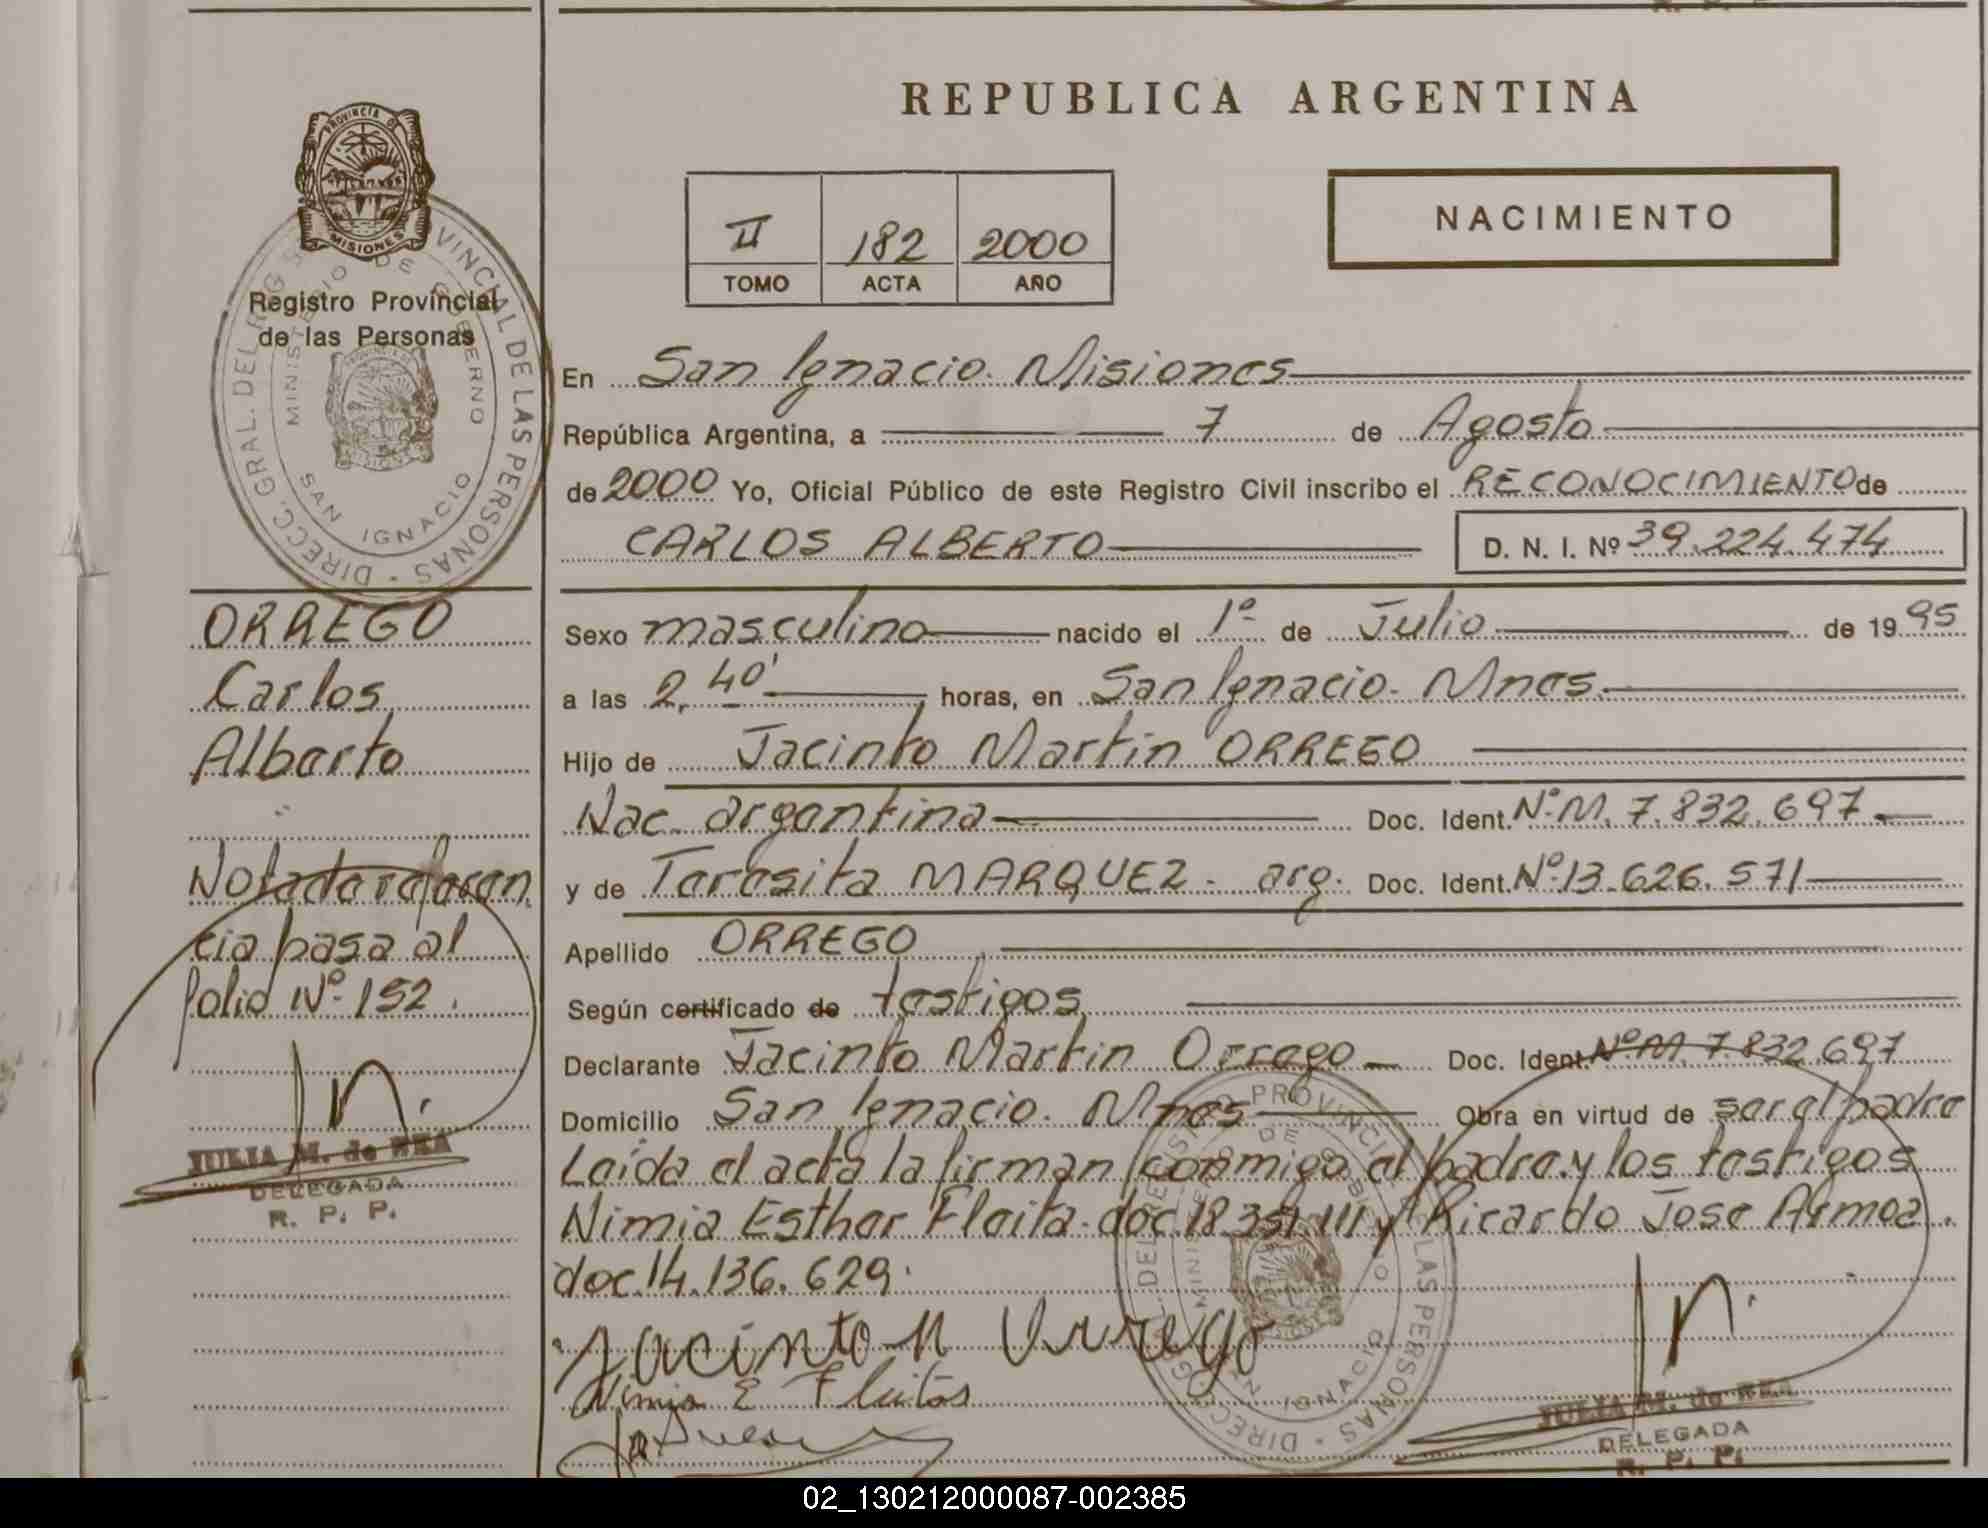 REPUBLICA ARGENTINA
PROVINCIA DE MISIONES
Registro Provincial
de las Personas
DIRECC. GRAL. DEL REGISTRO PROVINCIAL DE LAS PERSONAS
MINISTERIO DE GOBIERNO
SAN IGNACIO
II 182 2000
TOMO ACTA AÑO
NACIMIENTO
En San Ignacio. Misiones
República Argentina, a 7 de Agosto
de 2000 Yo, Oficial Público de este Registro Civil inscribo el RECONOCIMIENTO de
CARLOS ALBERTO D. N. I. Nº 39.224.474
Sexo masculino nacido el 1º de Julio de 1995
a las 2,40' horas, en San Ignacio. Mnes.
Hijo de Jacinto Martin ORREGO
Nac. argentina Doc. Ident. Nº M. 7.832.697
y de Teresita MARQUEZ. arg. Doc. Ident. Nº 13.626.571
Apellido ORREGO
Según certificado de testigos
Declarante Jacinto Martin Orrego Doc. Ident. Nº M. 7.832.697
Domicilio San Ignacio. Mnes Obra en virtud de ser el padre
Leida el acta la firman conmigo el padre y los testigos
Nimia Esther Fleita. doc. 18.351.111 y Ricardo Jose Armoa.
doc. 14.136.629.
Jacinto M Orrego
Nimia E Fleitas
JULIA M. de REA
DELEGADA
R. P. P.
ORREGO
Carlos
Alberto
Nota de referen
cia pasa al
folio Nº 152.
JULIA M. de REA
DELEGADA
R. P. P.
02_130212000087-002385